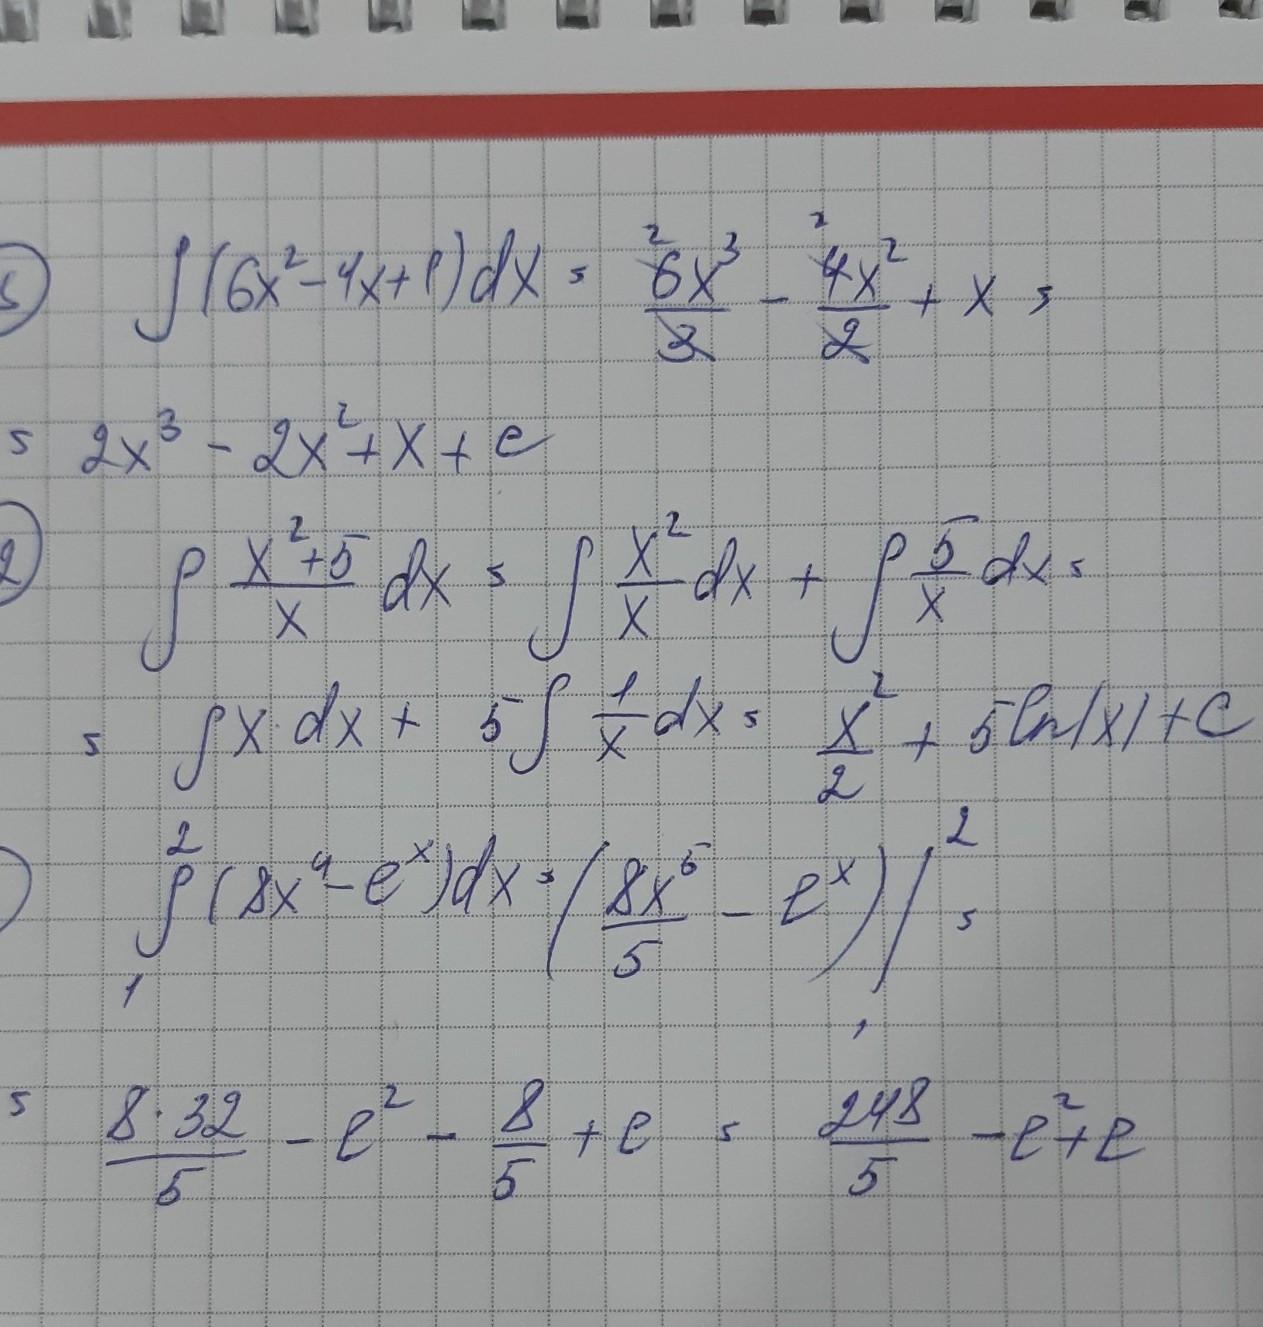 ∫(6x²-4x+1)dx = 6x³/3 - 4x²/2 + x =
= 2x³ - 2x² + x + c
2) ∫ (x²+5)/x dx = ∫ x²/x dx + ∫ 5/x dx =
= ∫x·dx + 5∫ 1/x dx = x²/2 + 5ln|x| + C
∫₁² (8x⁴-eˣ)dx = (8x⁵/5 - eˣ)|₁² =
= 8·32/5 - e² - 8/5 + e = 248/5 - e² + e